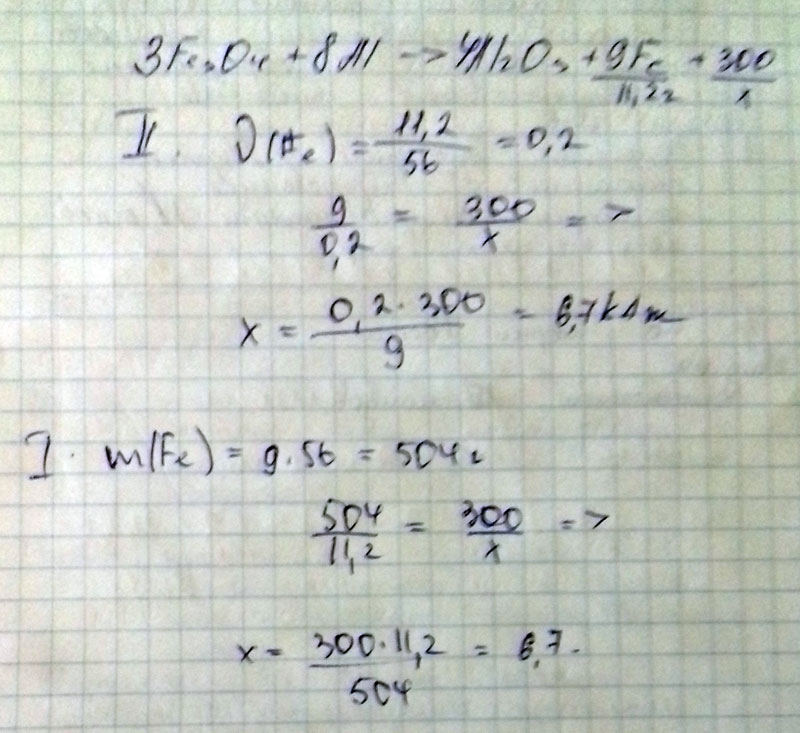 3Fe₃O₄ + 8Al → 4Al₂O₃ + 9Fe + 300
11,2г x
II. ν(Fe) = 11,2/56 = 0,2
9/0,2 = 300/x =>
x = 0,2·300/9 = 6,7 кДж
I. m(Fe) = 9·56 = 504г
504/11,2 = 300/x =>
x = 300·11,2/504 = 6,7.